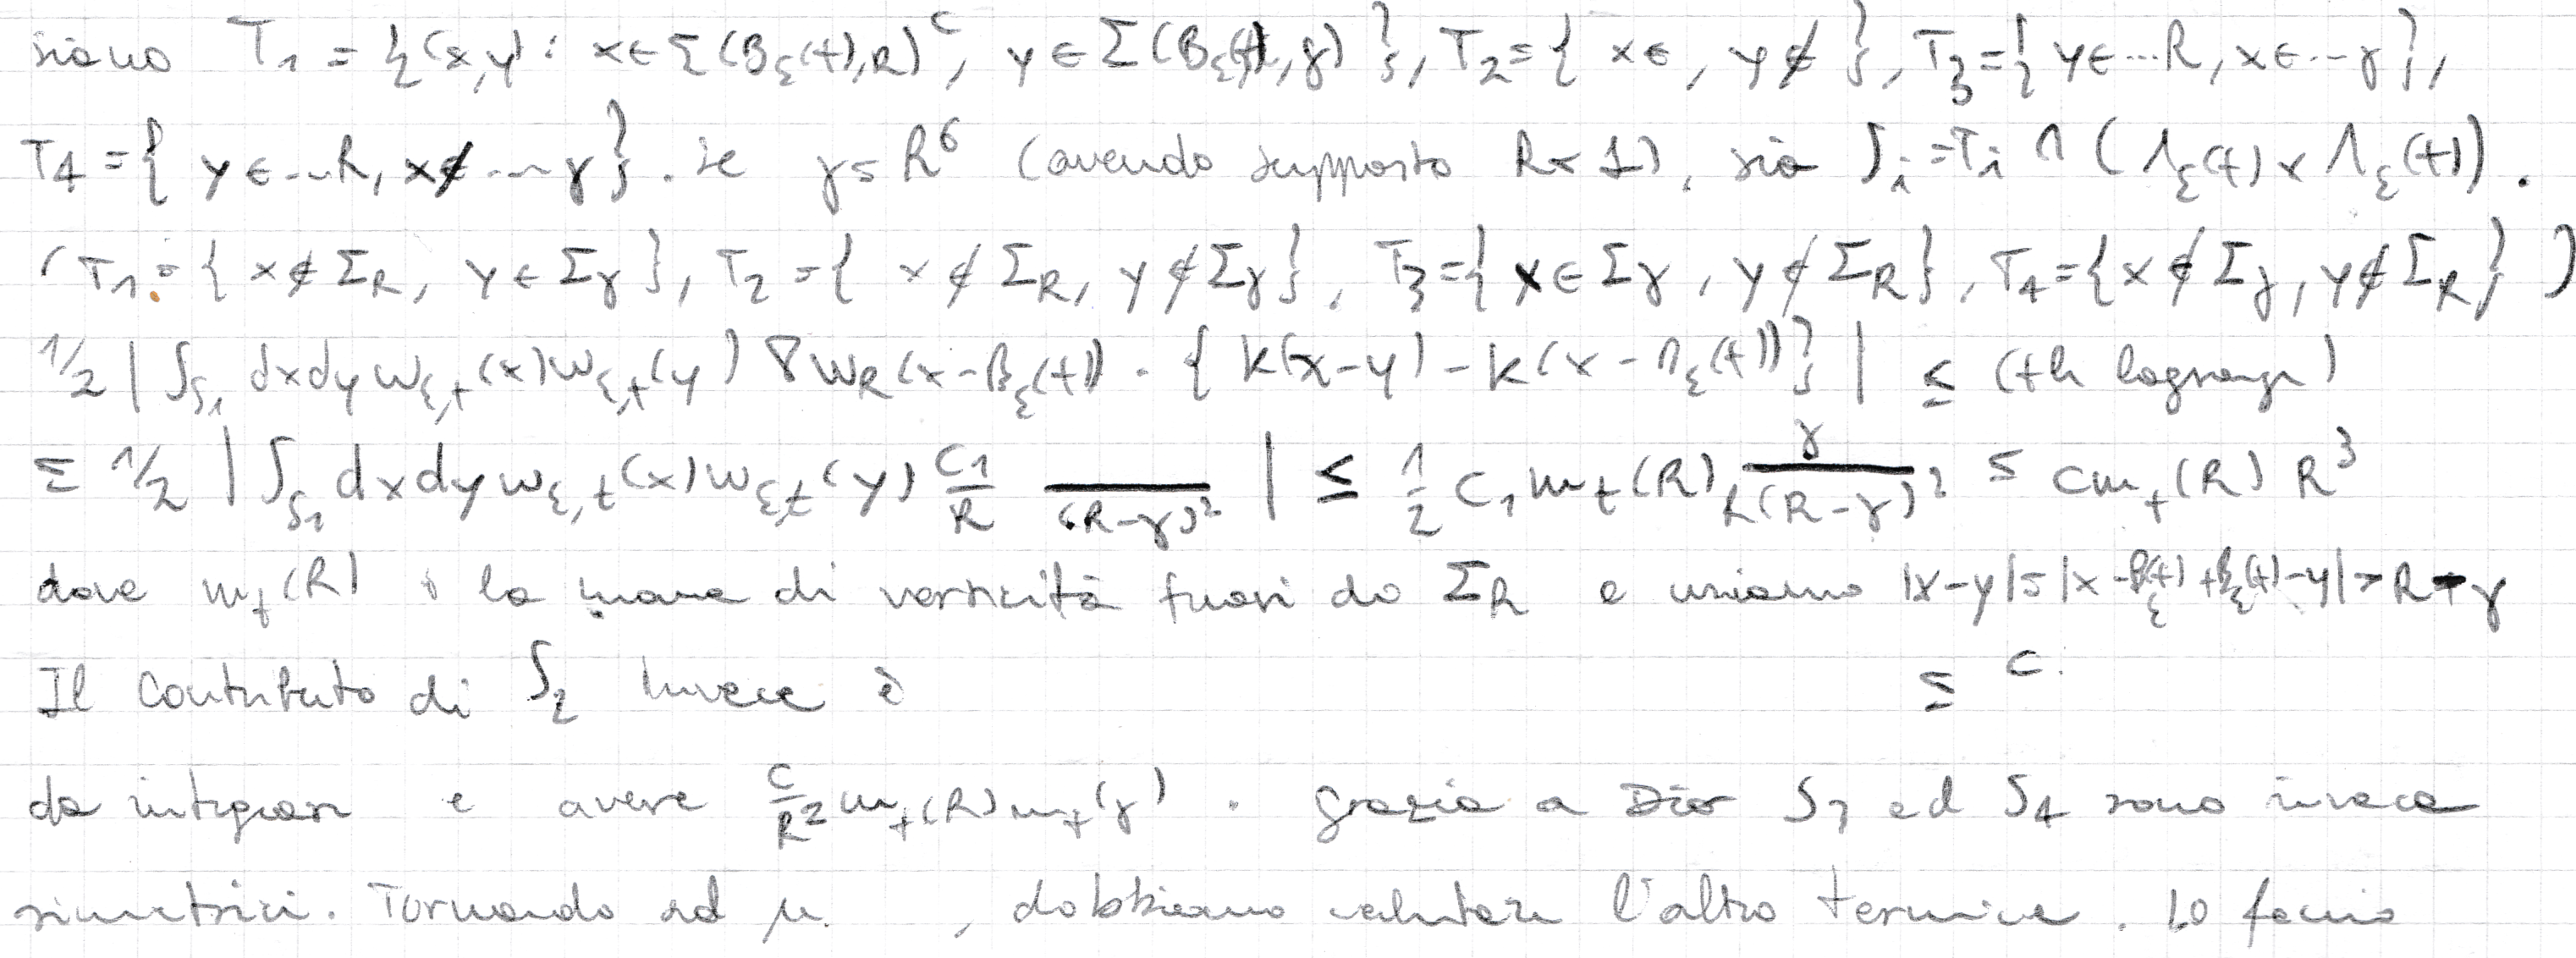 siano T₁ = {(x,y) : x ∈ Σ(B_ε(t),R)^c, y ∈ Σ(B_ε(t),γ)}, T₂ = { x ∈ , y ∉ }, T₃ = { y ∈ ... R, x ∈ ... γ},
T₄ = { y ∈ ... R, x ∉ ... γ}. se γ = R⁶ (avendo supposto R < 1), sia S_i = T_i ∩ (Λ_ε(t) × Λ_ε(t)).
(T₁ = { x ∉ Σ_R, y ∈ Σ_γ}, T₂ = { x ∉ Σ_R, y ∉ Σ_γ}, T₃ = { x ∈ Σ_γ, y ∉ Σ_R}, T₄ = {x ∉ Σ_γ, y ∉ Σ_R})
1/2 | ∫_{S₁} dxdy ω_{ε,t}(x) ω_{ε,t}(y) ∇W_R(x - B_ε(t)) · { K(x-y) - K(x - B_ε(t))} | ≤ (th lagrange)
≤ 1/2 | ∫_{S₁} dxdy ω_{ε,t}(x) ω_{ε,t}(y) C₁/R 1/(R-γ)² | ≤ 1/2 C₁ m_t(R) γ/R(R-γ)² ≤ C m_t(R) R³
dove m_t(R) è la massa di vorticità fuori da Σ_R e usiamo |x-y| = |x - B_ε(t) + B_ε(t) - y| > R - γ
Il contributo di S₂ invece è ≤ C
da integrare e avere C/R² m_t(R) m_t(γ). grazie a Dio S₃ ed S₄ sono invece
simetrici. Tornando ad μ , dobbiamo valutare l'altro termine. Lo faccio